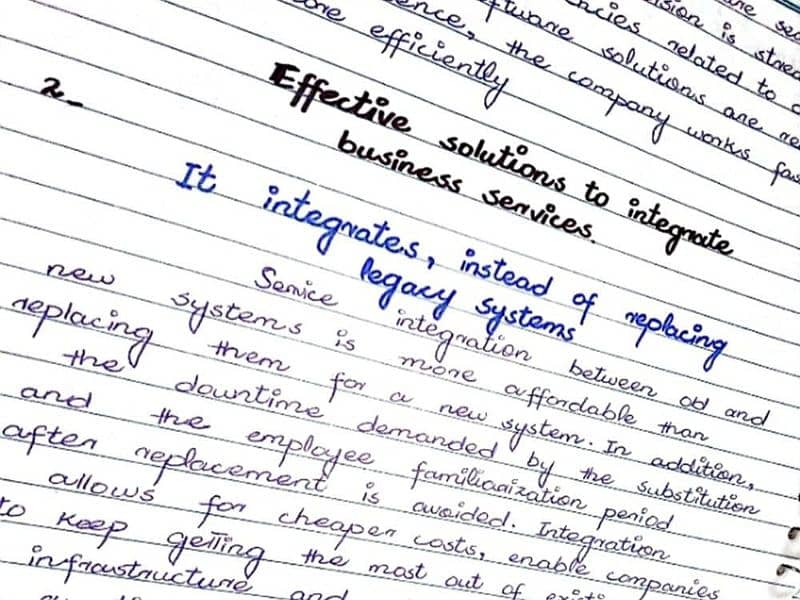 is stored
ence, the company works fas
software solutions are re
related to
efficiently
2- Effective solutions to integrate
business services.
It integrates, instead of replacing
legacy systems
Service integration between old and
new systems is more affordable than
replacing them for a new system. In addition,
the downtime demanded by the substitution
and the employee familiarization period
after replacement is avoided. Integration
allows for cheaper costs, enable companies
to keep getting the most out of
infraustructure and